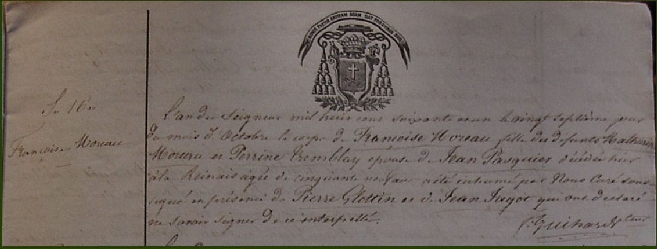 Se 16e
Françoise Moreau
L'an du Seigneur mil huit cent soixante et un le vingt septième jour
du mois d'Octobre le corps de Françoise Moreau fille des défunts Mathurin
Moreau et Perrine Tremblay épouse de Jean Pasquier décédée hier
à la agée de cinquante neuf ans a été inhumé par Nous Curé sous
signé en présence de Pierre Glottin et de Jean Jagot qui ont déclaré
ne savoir signer de ce interpellé.
Guihard